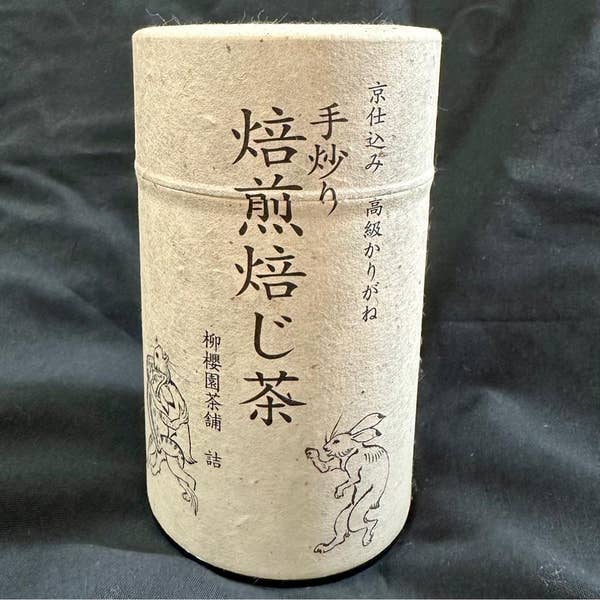 京仕込み 高級かりがね
手炒り
焙煎焙じ茶
柳櫻園茶舗 詰